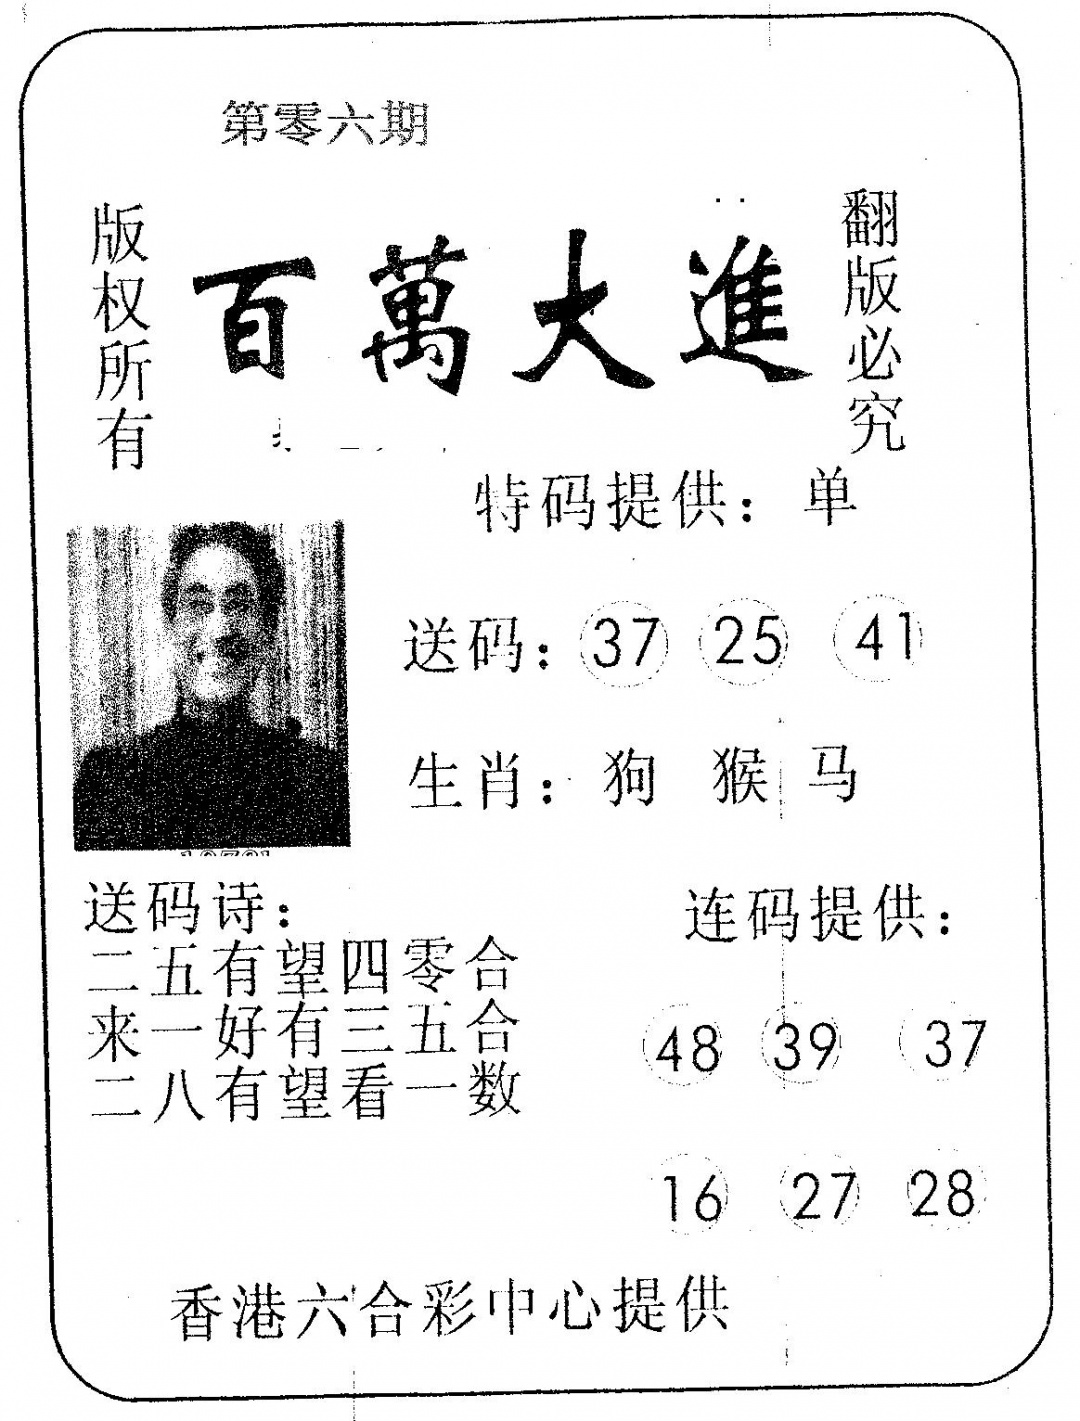 第零六期
版权所有
百萬大進
翻版必究
特码提供：单
送码：37 25 41
生肖：狗 猴 马
送码诗：
二五有望四零合
来一好有三五合
二八有望看一数
连码提供：
48 39 37
16 27 28
香港六合彩中心提供